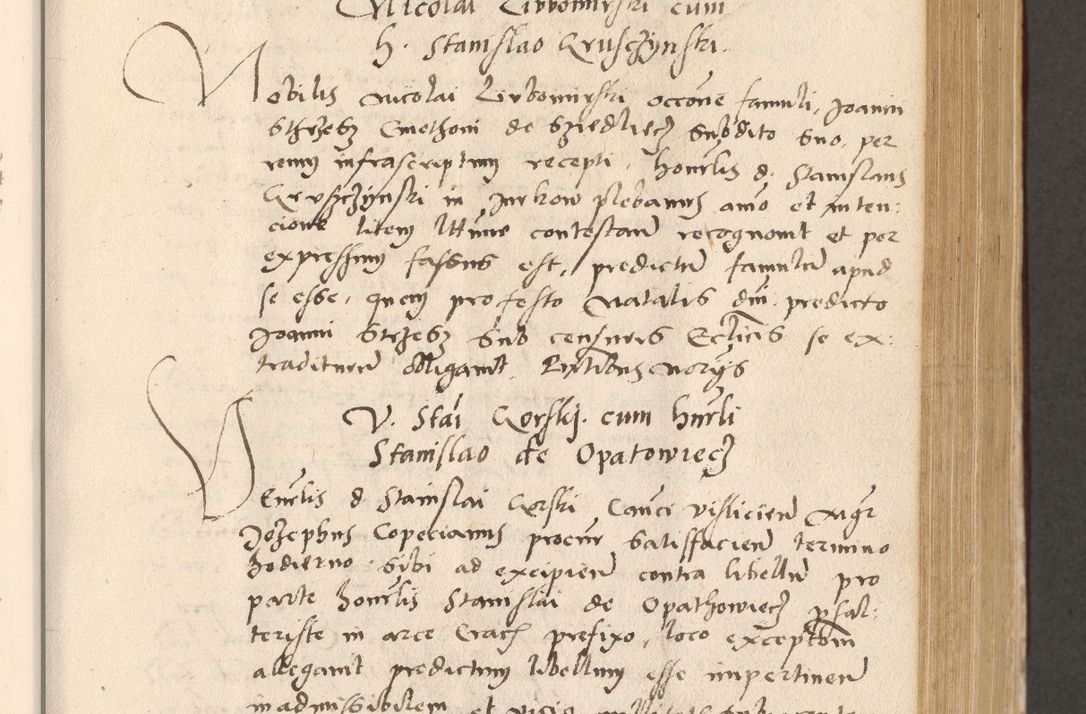 Nicolai Lubomyrski cum
h. Stanislao Kruszÿnski.
Nobilis Nicolai Lubomirski occone famuli, Joanni
Strzesz Cmethoni de Sziedliecz subdito suo, per
remy infrascriptum recepti, honrlis d. Stanislaus
Kruszczÿnski in Jurkow plebanus amo et inten:
cione litem lttime contestan recognouit et per
expressum fassus est, predictum famulum apud
se esse, quem pro festo Natalis dni predicto
Joanni Strzesz sub censuris Ecclicis se ex:
traditurum obligauit. Extibus Norijs
V. Stai Gorskj. cum hnrli
Stanislao de Opatowiecz
Venrlis d. Stanislai Gorski Canci Visliciens Mgr
Jozephus Copecianus procur satisfaciens termino
hodierno sibi ad excipiend contra libellum pro
parte honrlis Stanislai de Opathowiecz psal:
teriste in arce Crac prefixo, loco exceptom
allegauit predictum libellum esse impertinen
inadmissibilem et